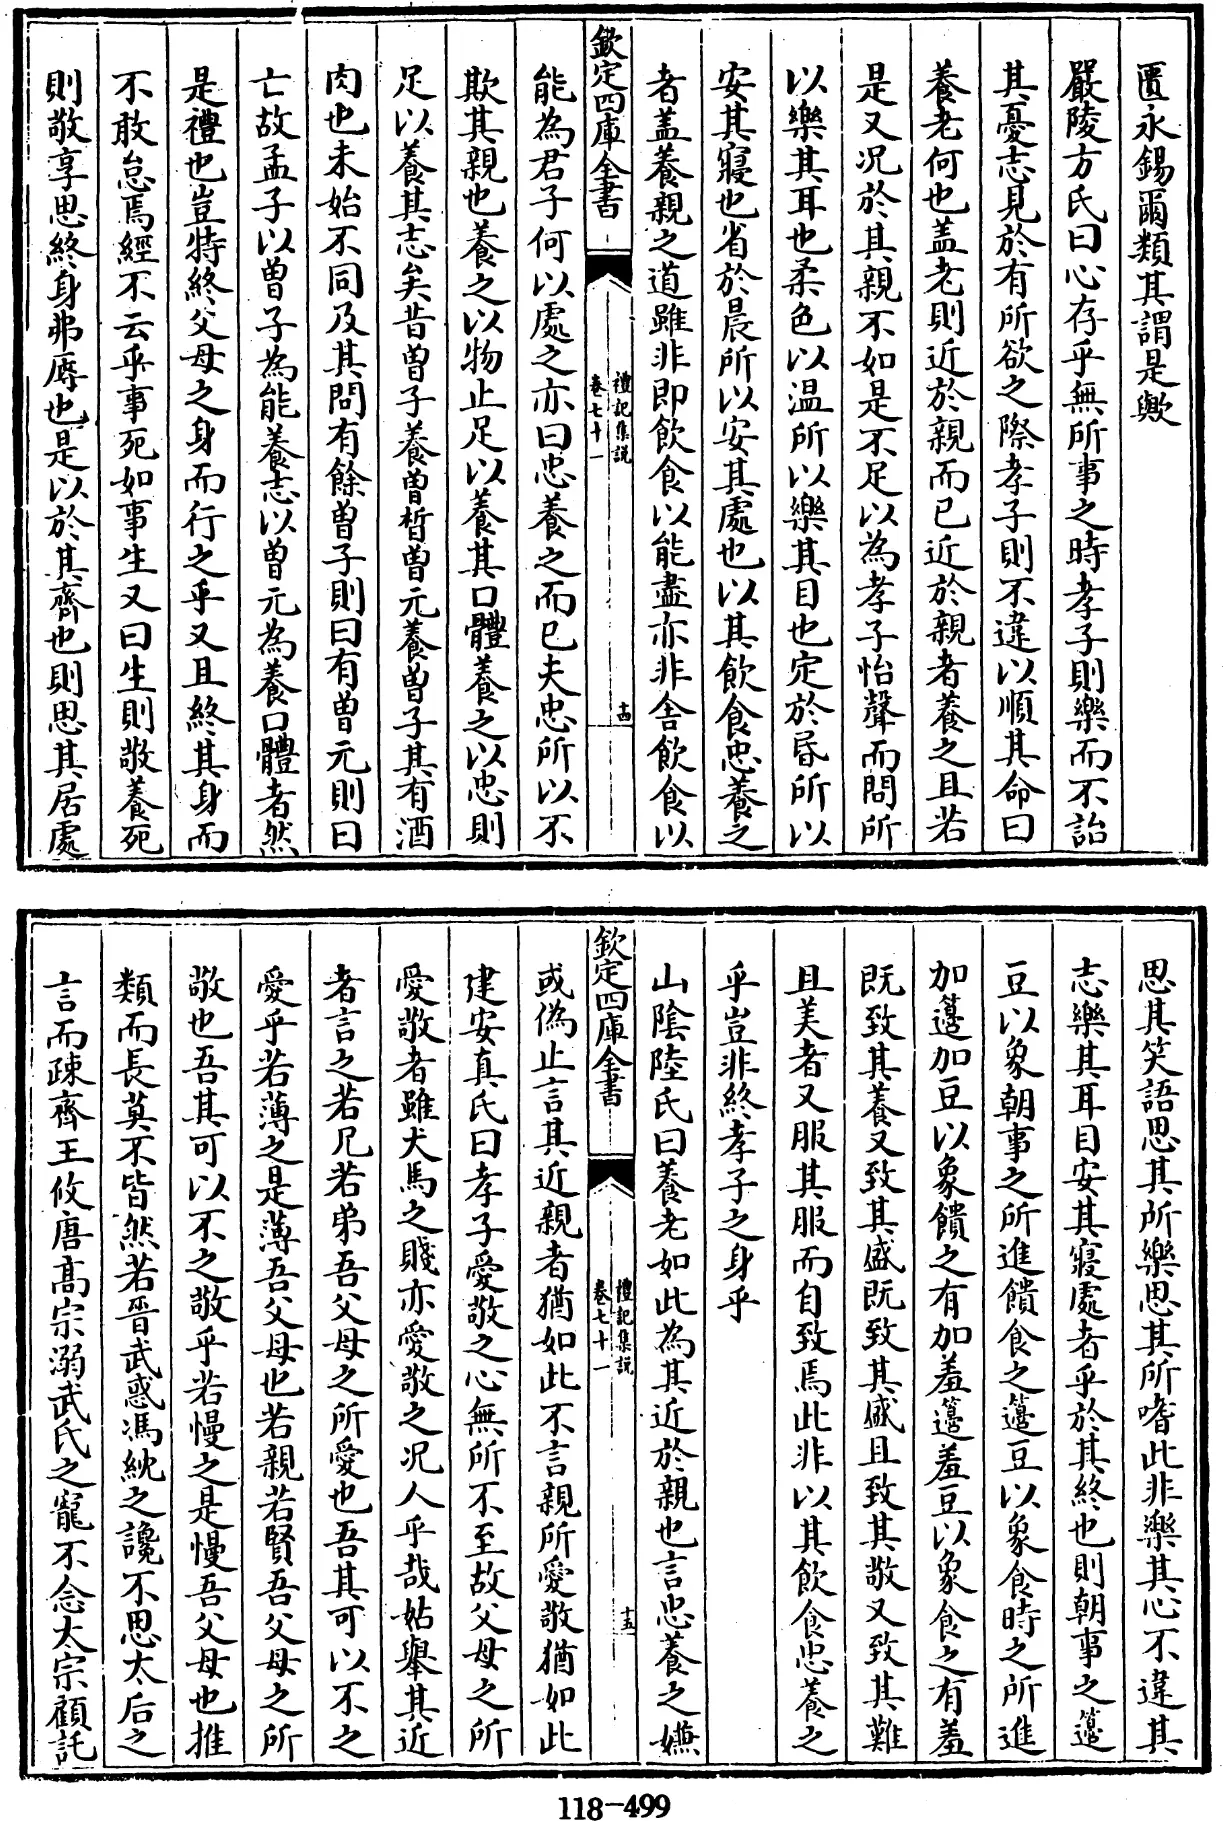 匱永錫爾類其謂是歟
嚴陵方氏曰心存乎無所事之時孝子則樂而不詒
其憂志見於有所欲之際孝子則不違以順其命曰
養老何也盖老則近於親而已近於親者養之且若
是又况於其親不如是不足以為孝子怡聲而問所
以樂其耳也柔色以温所以樂其目也定於昏所以
安其寢也省於晨所以安其處也以其飲食忠養之
者盖養親之道雖非即飲食以能盡亦非舍飲食以
欽定四庫全書
禮記集說
卷七十一
十四
能為君子何以處之亦曰忠養之而已夫忠所以不
欺其親也養之以物止足以養其口體養之以忠則
足以養其志矣昔曾子養曾晳曾元養曾子其有酒
肉也未始不同及其問有餘曾子則曰有曾元則曰
亡故孟子以曾子為能養志以曾元為養口體者然
是禮也豈特終父母之身而行之乎又且終其身而
不敢怠焉經不云乎事死如事生又曰生則敬養死
則敬享思終身弗辱也是以於其齊也則思其居處
思其笑語思其所樂思其所嗜此非樂其心不違其
志樂其耳目安其寢處者乎於其終也則朝事之籩
豆以象朝事之所進饋食之籩豆以象食時之所進
加籩加豆以象饋之有加羞籩羞豆以象食之有羞
既致其養又致其盛既致其盛且致其敬又致其難
且美者又服其服而自致焉此非以其飲食忠養之
乎豈非終孝子之身乎
山陰陸氏曰養老如此為其近於親也言忠養之嫌
欽定四庫全書
禮記集說
卷七十一
十五
或偽止言其近親者猶如此不言親所愛敬猶如此
建安真氏曰孝子愛敬之心無所不至故父母之所
愛敬者雖犬馬之賤亦愛敬之况人乎哉姑舉其近
者言之若兄若弟吾父母之所愛也吾其可以不之
愛乎若薄之是薄吾父母也若親若賢吾父母之所
敬也吾其可以不之敬乎若慢之是慢吾父母也推
類而長莫不皆然若晉武惑馮紞之讒不思太后之
言而疎齊王攸唐髙宗溺武氏之寵不念太宗顧託
118-499